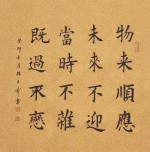 物来順應
未來不迎
當時不雜
既過不戀
癸卯